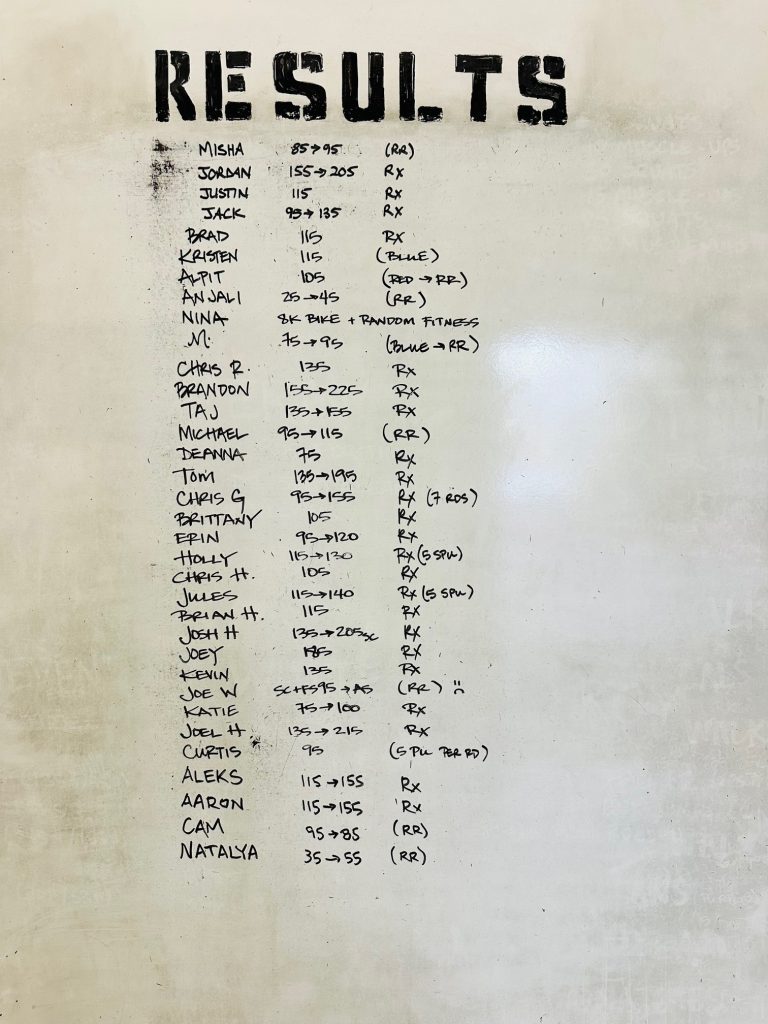 RESULTS
MISHA 85→95 (RR)
JORDAN 155→205 RX
JUSTIN 115 RX
JACK 95→135 RX
BRAD 115 RX
KRISTEN 115 (BLUE)
ALPIT 105 (RED→RR)
ANJALI 25→45 (RR)
NINA 8K BIKE + RANDOM FITNESS
M. 75→95 (BLUE→RR)
CHRIS R. 135 RX
BRANDON 155→225 RX
TAJ 135→155 RX
MICHAEL 95→115 (RR)
DEANNA 75 RX
TOM 135→195 RX
CHRIS G 95→155 RX (7 RDS)
BRITTANY 105 RX
ERIN 95→120 RX
HOLLY 115→130 RX (5 SPU)
CHRIS H. 105 RX
JULES 115→140 RX (5 SPU)
BRIAN H. 115 RX
JOSH H 135→205SC RX
JOEY 185 RX
KEVIN 135 RX
JOE W SC+FS95→ (RR) :(
KATIE 75→100 RX
JOEL H. 135→215 RX
CURTIS 95 (5 PU PER RD)
ALEKS 115→155 RX
AARON 115→155 RX
CAM 95→85 (RR)
NATALYA 35→55 (RR)